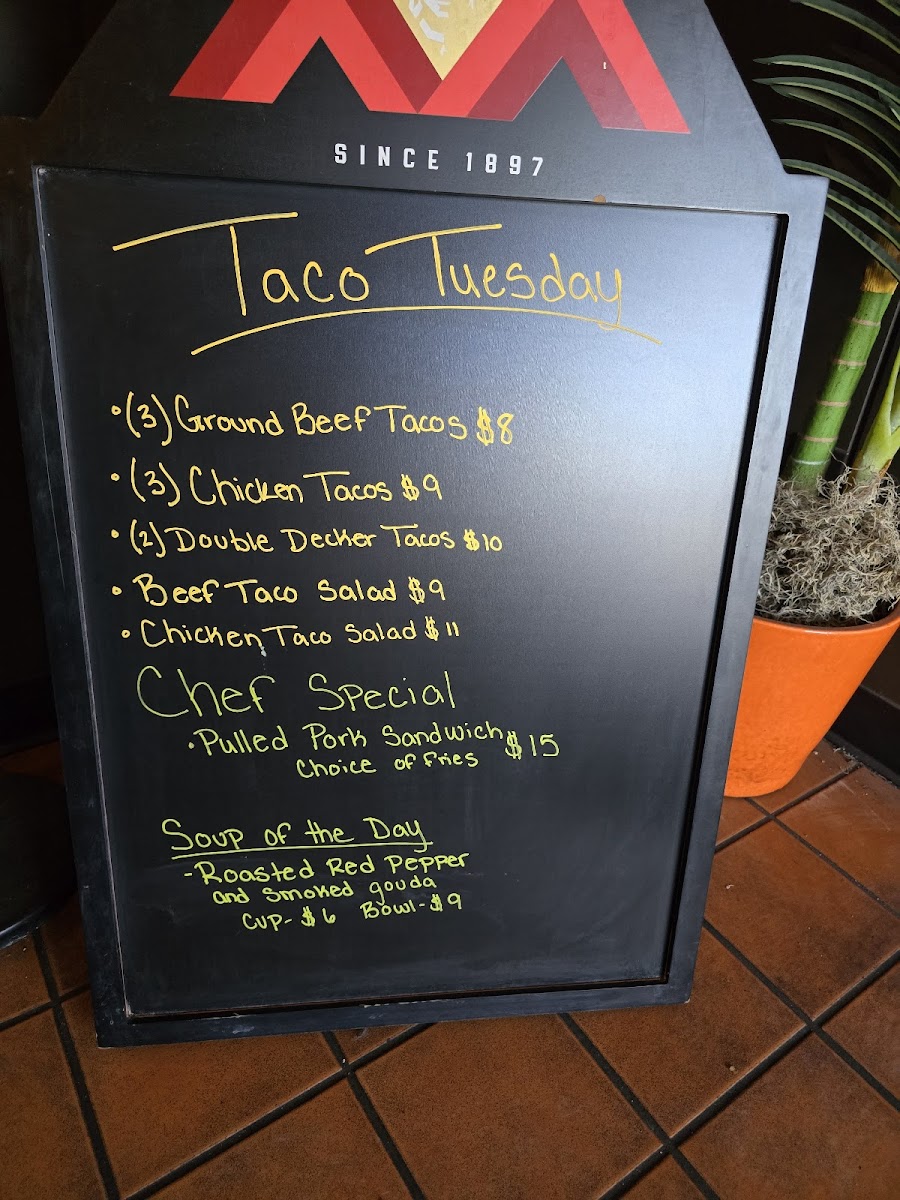 SINCE 1897
Taco Tuesday
• (3) Ground Beef Tacos $8
• (3) Chicken Tacos $9
• (2) Double Decker Tacos $10
• Beef Taco Salad $9
• Chicken Taco Salad $11
Chef Special
• Pulled Pork Sandwich $15
Choice of Fries
Soup of the Day
- Roasted Red Pepper
and Smoked gouda
Cup- $6 Bowl- $9